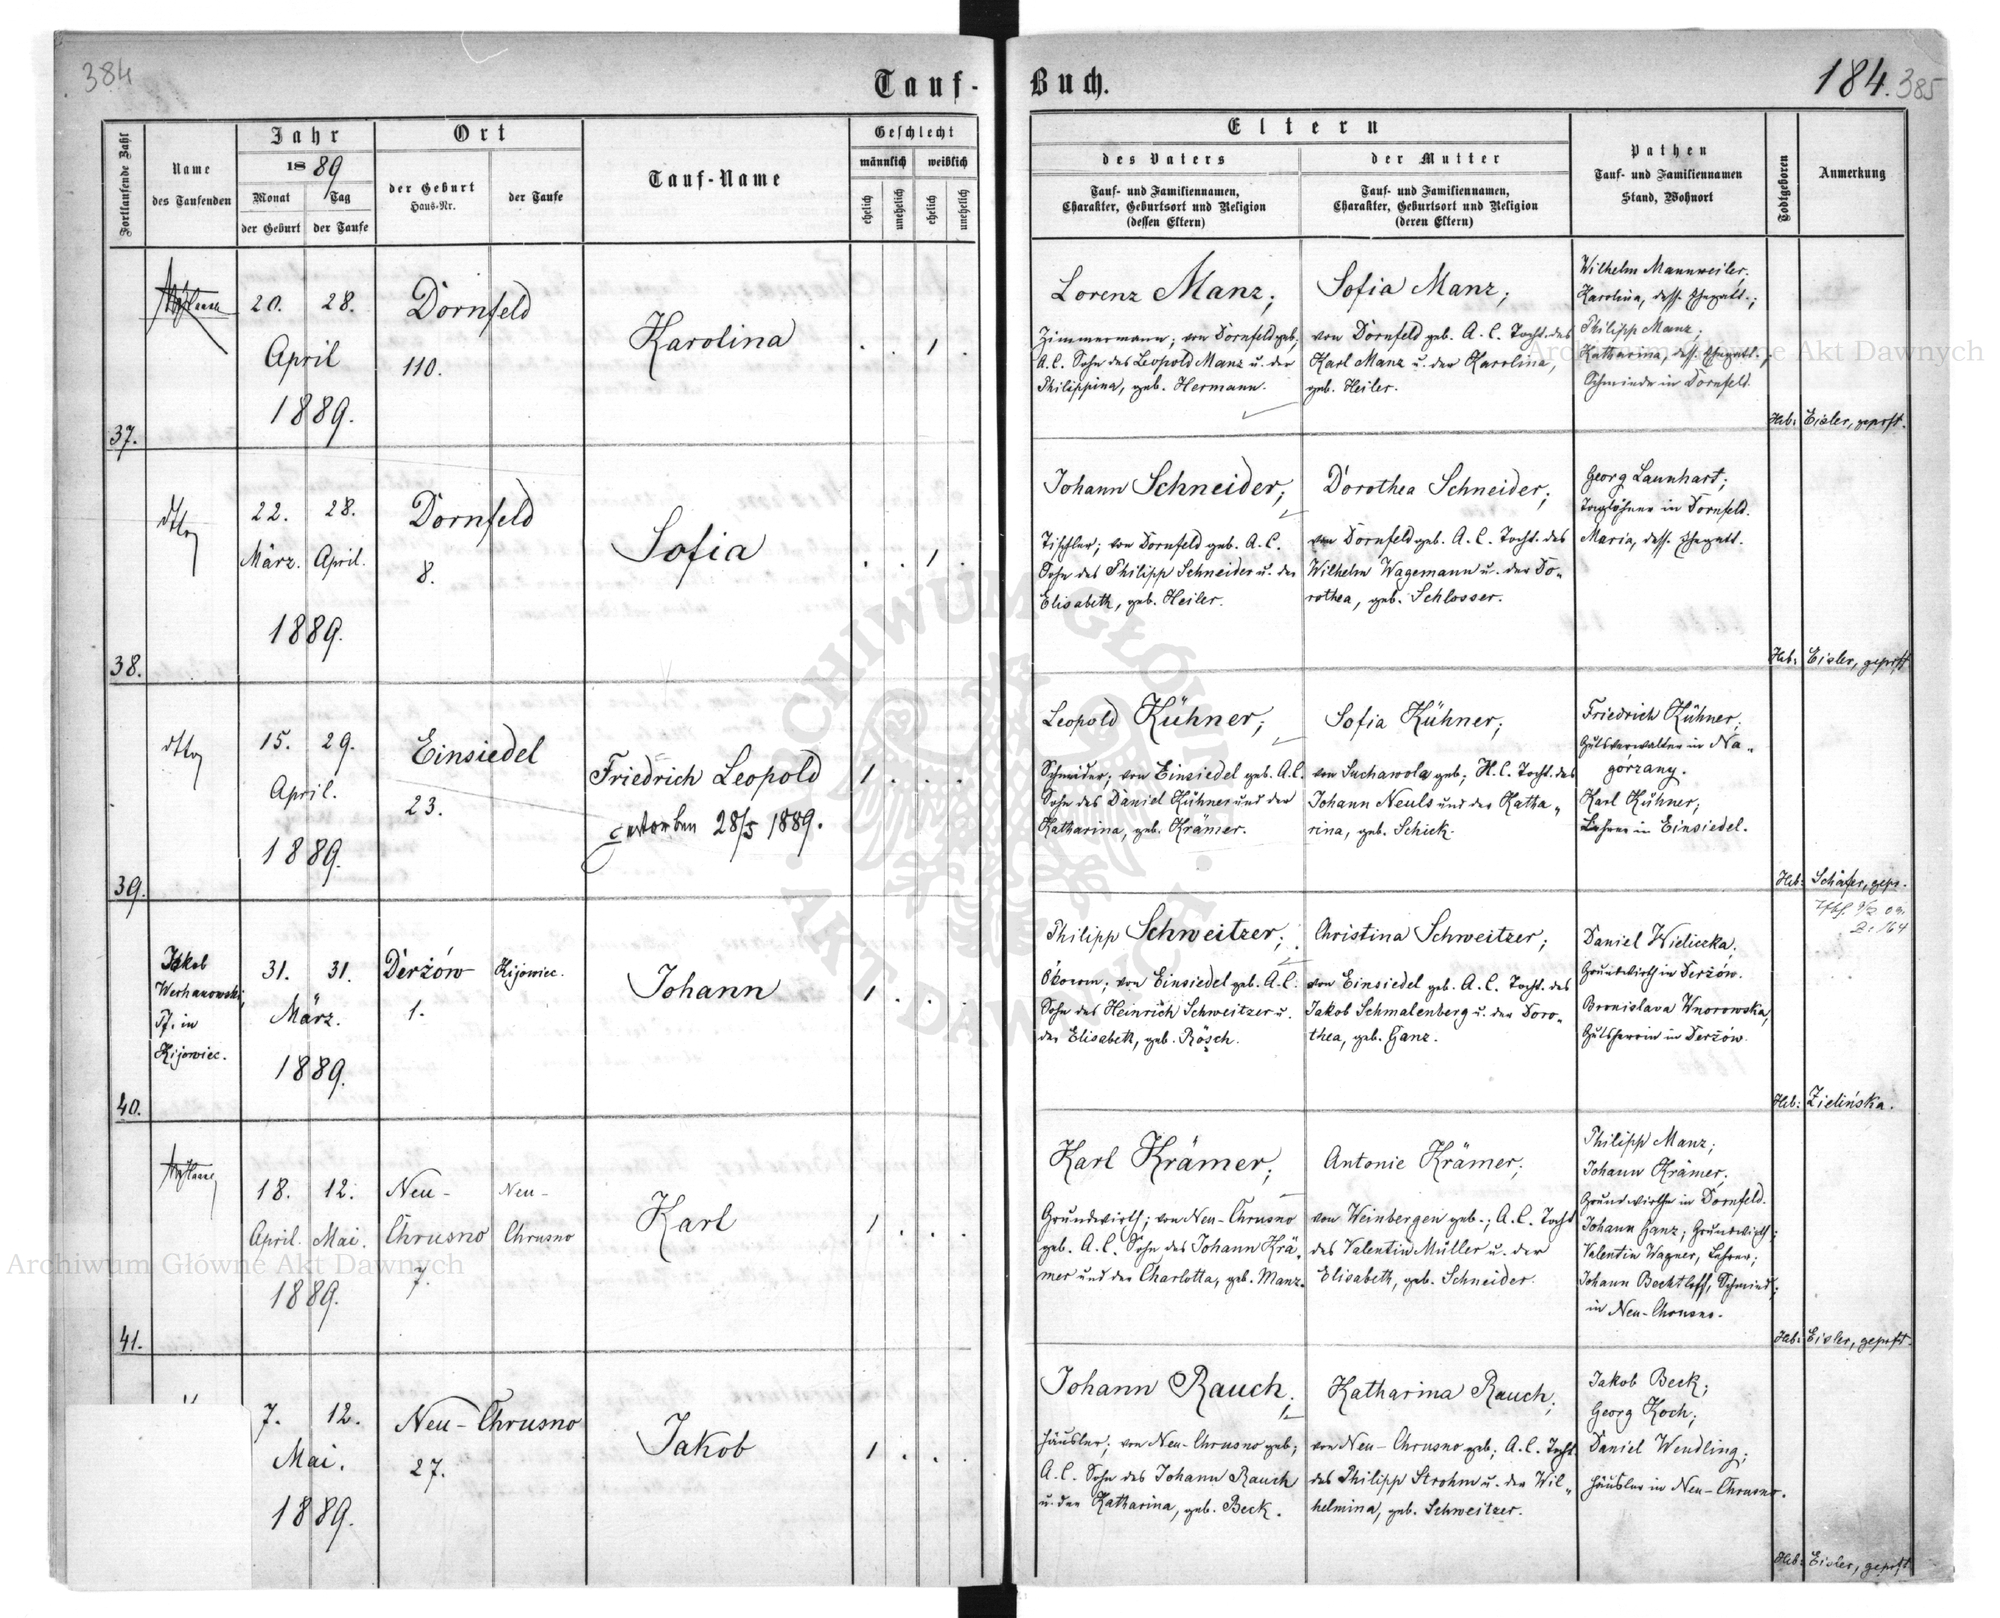 384
Tauf-
Buch.
184.
385
Fortlaufende Zahl
Name
des Taufenden
Jahr
1889
Monat
der Geburt
Tag
der Taufe
Ort
der Geburt
Haus-Nr.
der Taufe
Tauf-Name
Geschlecht
männlich
weiblich
ehelich
unehelich
ehelich
unehelich
Eltern
des Vaters
Tauf- und Familiennamen,
Charakter, Geburtsort und Religion
(dessen Eltern)
der Mutter
Tauf- und Familiennamen,
Charakter, Geburtsort und Religion
(deren Eltern)
Pathen
Tauf- und Familiennamen
Stand, Wohnort
Todtgeboren
Anmerkung
37.
20. 28.
April
1889.
Dornfeld
110.
Karolina
. . 1 .
Lorenz Manz;
Zimmermann; von Dornfeld geb.
A.C. Sohn des Leopold Manz u. der
Philippina, geb. Hermann.
Sofia Manz;
von Dornfeld geb. A.C. Tocht. des
Karl Manz u. der Karolina,
geb. Heiler.
Wilhelm Mannweiler.
Karolina, dess. Ehegatt.;
Philipp Manz;
Katharina, dess. Ehegatt.,
Schmiede in Dornfeld.
Heb: Eisler, geprft.
38.
dtto
22. 28.
März. April.
1889.
Dornfeld
8.
Sofia
. . 1 .
Johann Schneider;
Tischler; von Dornfeld geb. A.C.
Sohn des Philipp Schneider u. der
Elisabeth, geb. Heiler.
Dorothea Schneider;
von Dornfeld geb. A.C. Tocht. des
Wilhelm Wagemann u. der Do-
rothea, geb. Schlosser.
Georg Launhart;
Taglöhner in Dornfeld.
Maria, dess. Ehegatt.
Heb: Eisler, geprft
39.
dtto
15. 29.
April.
1889.
Einsiedel
23.
Friedrich Leopold
gestorben 28/5 1889.
1 . . .
Leopold Kühner;
Schneider; von Einsiedel geb. A.C.
Sohn des Daniel Kühner und der
Katharina, geb. Krämer.
Sofia Kühner;
von Suchawola geb; H.C. Tocht. des
Johann Neuls und der Katha-
rina, geb. Schick.
Friedrich Kühner;
Gutsverwalter in Na-
górzany.
Karl Kühner;
Lehrer in Einsiedel.
Heb: Schäfer, gepr.
40.
Jakob
Werhanowski,
Pf. in
Kijowiec.
31. 31.
März.
1889.
Derżów
1.
Kijowiec.
Johann
1 . . .
Philipp Schweitzer;
Ökonom; von Einsiedel geb. A.C.
Sohn des Heinrich Schweitzer u.
der Elisabeth, geb. Rösch.
Christina Schweitzer;
von Einsiedel geb. A.C. Tocht. des
Jakob Schmalenberg u. der Doro-
thea, geb. Ganz.
Daniel Wieliczka;
Grundwirth in Derżów.
Bronislava Wnorowska,
Gutsherrin in Derżów.
Heb: Zielińska.
41.
18. 12.
April. Mai.
1889.
Neu-
Chrusno
7.
Neu-
Chrusno
Karl
1 . . .
Karl Krämer;
Grundwirth; von Neu-Chrusno
geb. A.C. Sohn des Johann Krä-
mer und der Charlotta, geb. Manz.
Antonie Krämer;
von Weinbergen geb.; A.C. Tocht
des Valentin Müller u. der
Elisabeth, geb. Schneider.
Philipp Manz;
Johann Krämer;
Grundwirthe in Dornfeld.
Johann Ganz; Grundwirth;
Valentin Wagner, Lehrer;
Johann Bechtloff, Schmied;
in Neu-Chrusno.
Heb: Eisler, geprft.
7. 12.
Mai.
1889.
Neu-Chrusno
27.
Jakob
1 . . .
Johann Rauch;
Häusler; von Neu-Chrusno geb;
A.C. Sohn des Johann Rauch
u. der Katharina, geb. Beck.
Katharina Rauch;
von Neu-Chrusno geb; A.C. Tocht.
des Philipp Strohm u. der Wil-
helmina, geb. Schweitzer.
Jakob Beck;
Georg Koch;
Daniel Wendling;
Häusler in Neu-Chrusno.
Heb: Eisler, geprft
Archiwum Główne Akt Dawnych
Archiwum Główne Akt Dawnych
ARCHIWUM GŁÓWNE
AKT DAWNYCH